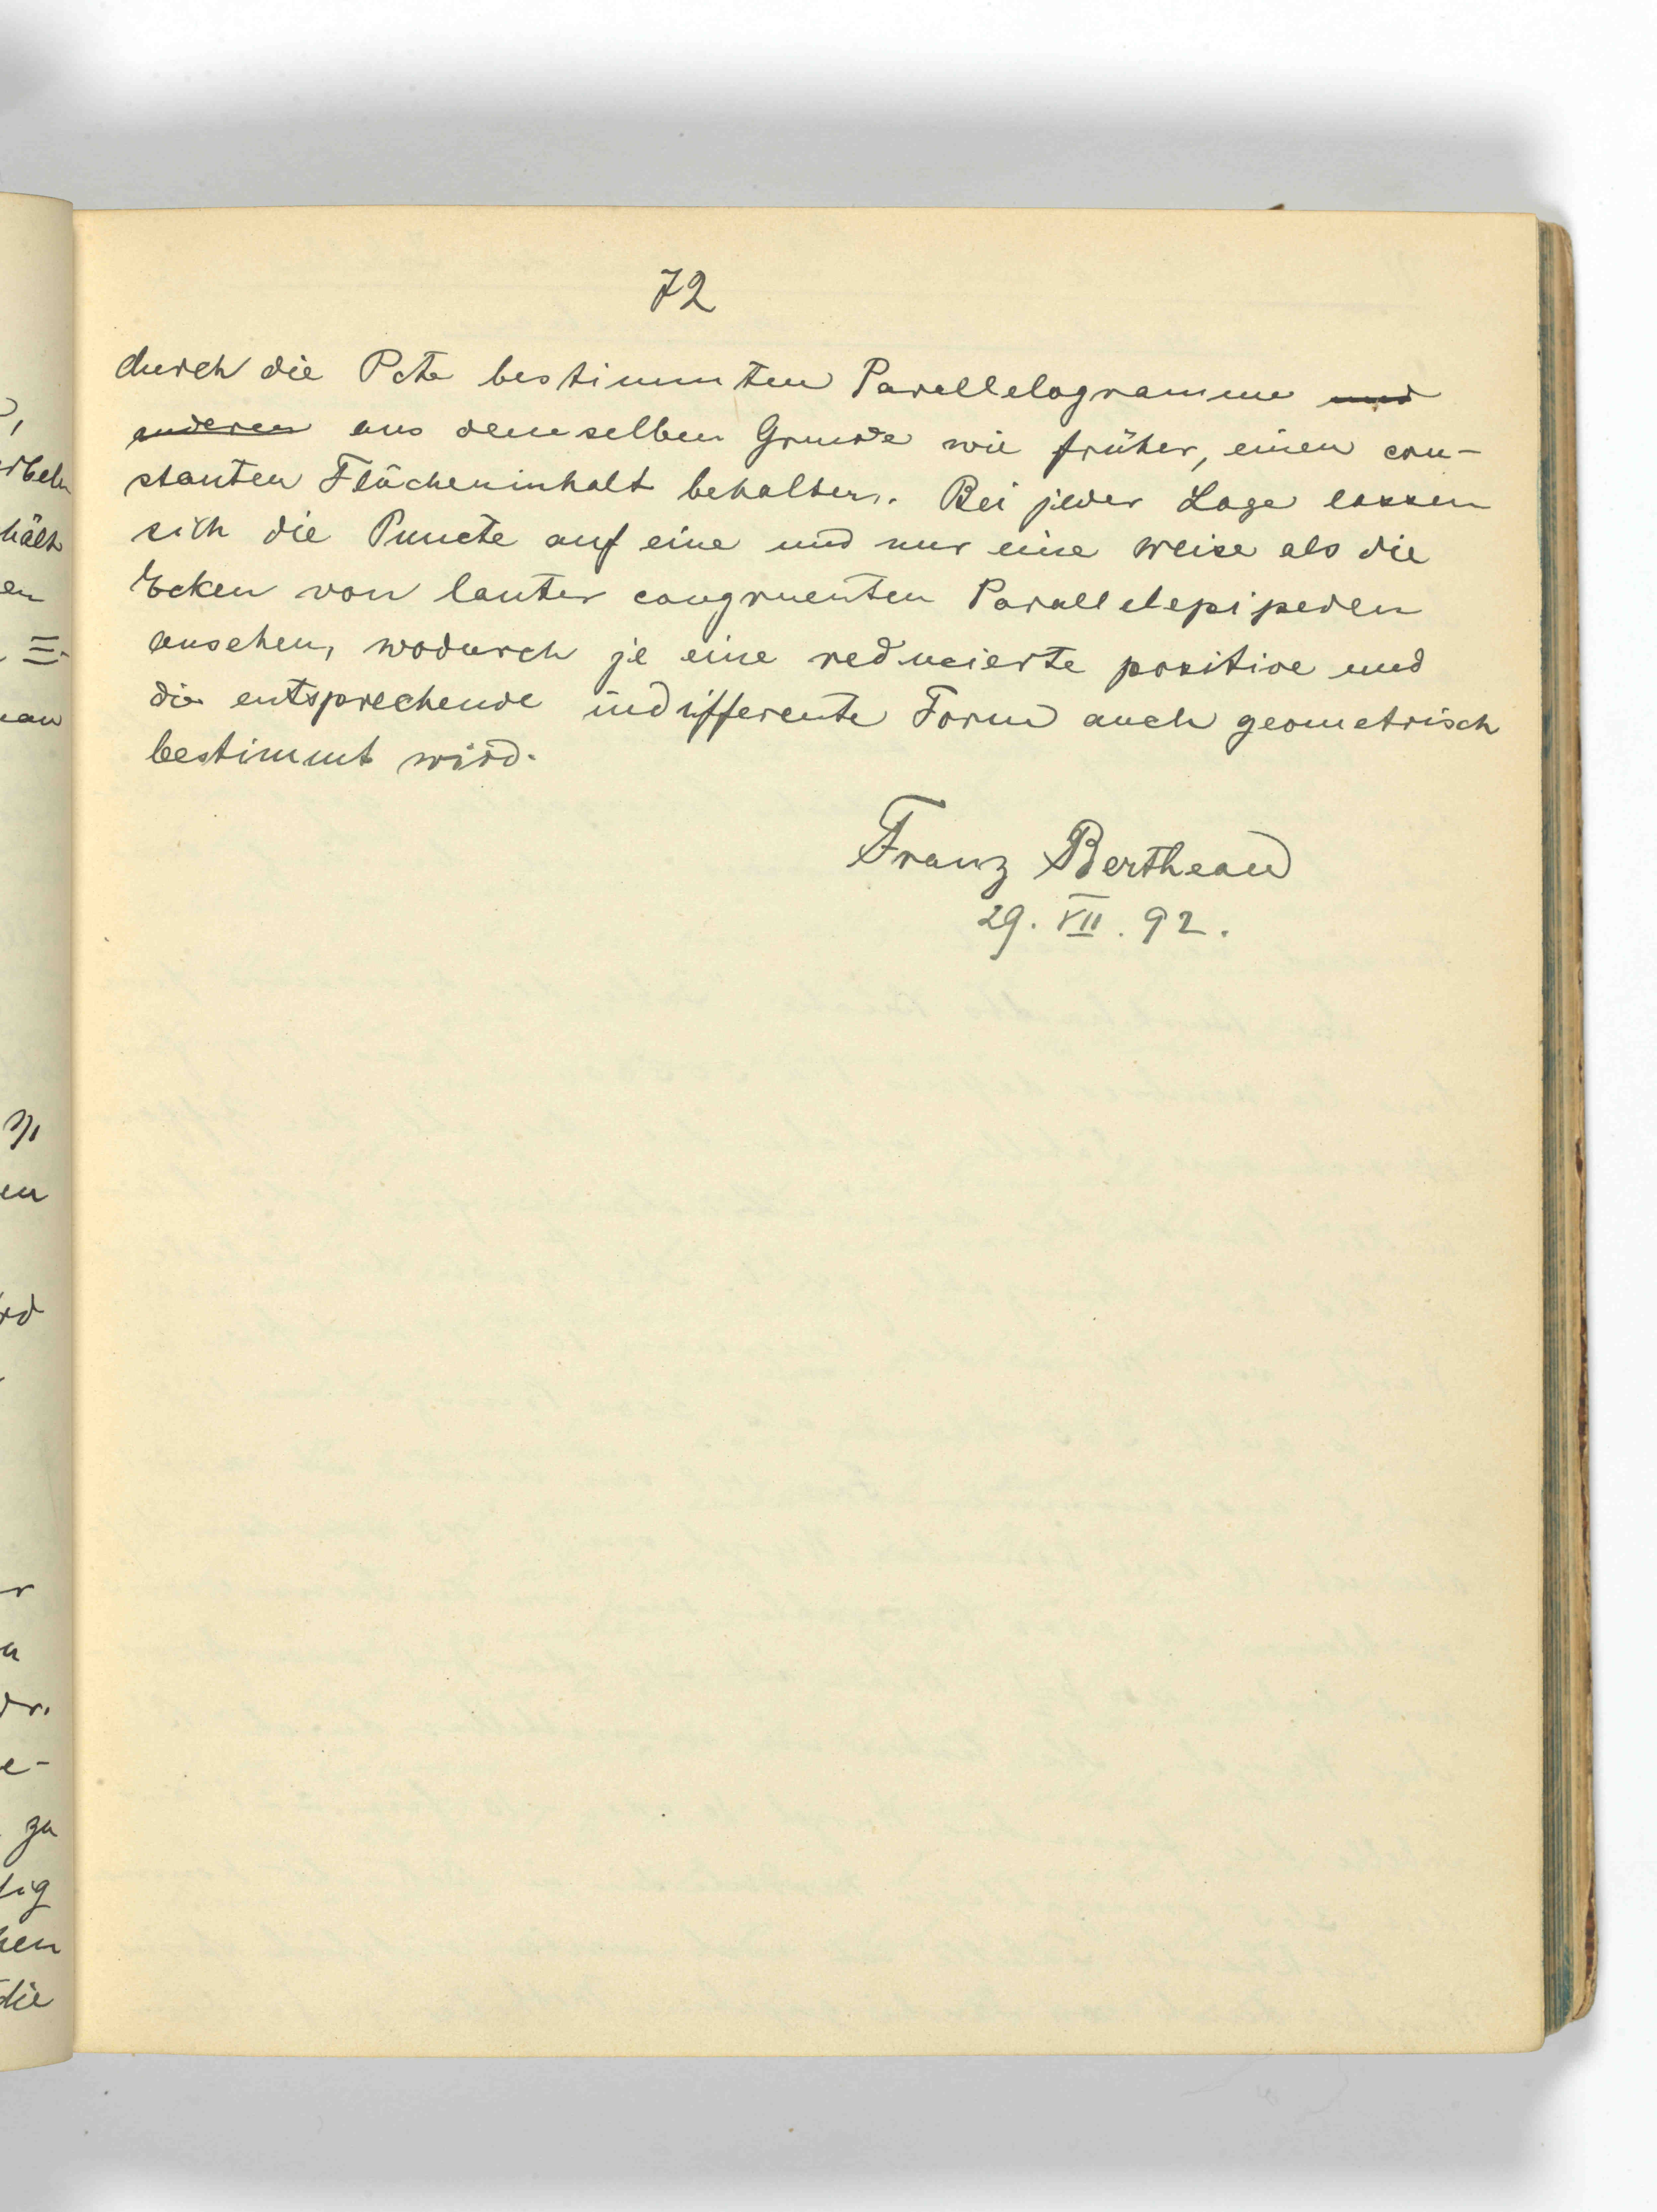 72
durch die Pcte bestimmten Parallelogramme und
anderen aus demselben Grunde wie früher, einen con-
stanten Flächeninhalt behalten. Bei jeder Lage lassen
sich die Puncte auf eine und nur eine weise als die
Ecken von lauter congruenten Parallelepipeden
ansehen, wodurch je eine reducierte positive und
die entsprechende indifferente Form auch geometrisch
bestimmt wird.
Franz Bertheau
29. VII. 92.
hält
en
≡
en
r
e-
zu
tig
hen
die